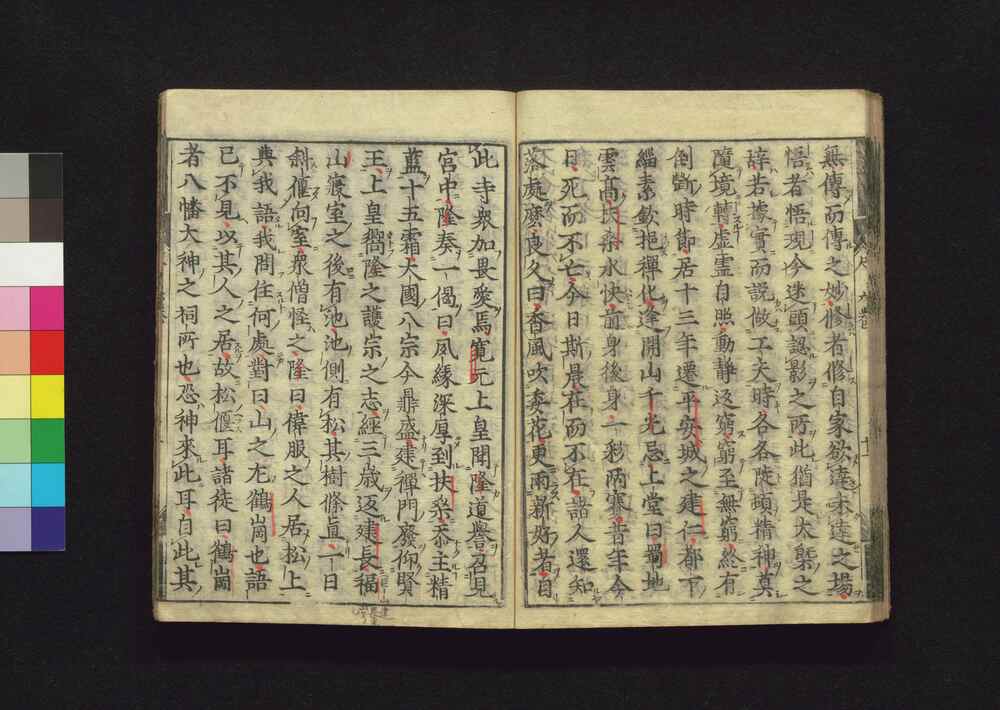 無傳而傳之妙修者修自家欲達未達之場
悟者悟現今迷頭認影之所此猶是太槩之
辭若據實而説做工夫時各各陡頓精神莫
隨境轉虛霊自照動靜返窮窮至無窮終有
倒斷時節居十三年遷平安城之建仁都下
緇素欽挹禪化逢開山千光忌上堂曰蜀地
雲高扶桒水快前身後身一彩兩賽昔年今
日死而不亡今日斯晨在而不在諸人還知
落處麼良久曰香風吹萎花更雨新好者自
此寺衆加畏愛焉寛元上皇聞隆道譽召見
宮中隆奏一偈曰夙緣深厚到扶桒忝主精
藍十五霜大國八宗今鼎盛建禪門廢仰賢
王上皇嚮隆之護宗之志經三歳返建長福
山寢室之後有池池側有松其樹條直一日
斜偃向室衆僧怪之隆曰偉服之人居松上
與我語我問住何處對曰山之尤鶴崗也語
已不見以其人之居故松偃耳諸徒曰鶴崗
者八幡大神之祠所也恐神來此耳自此其